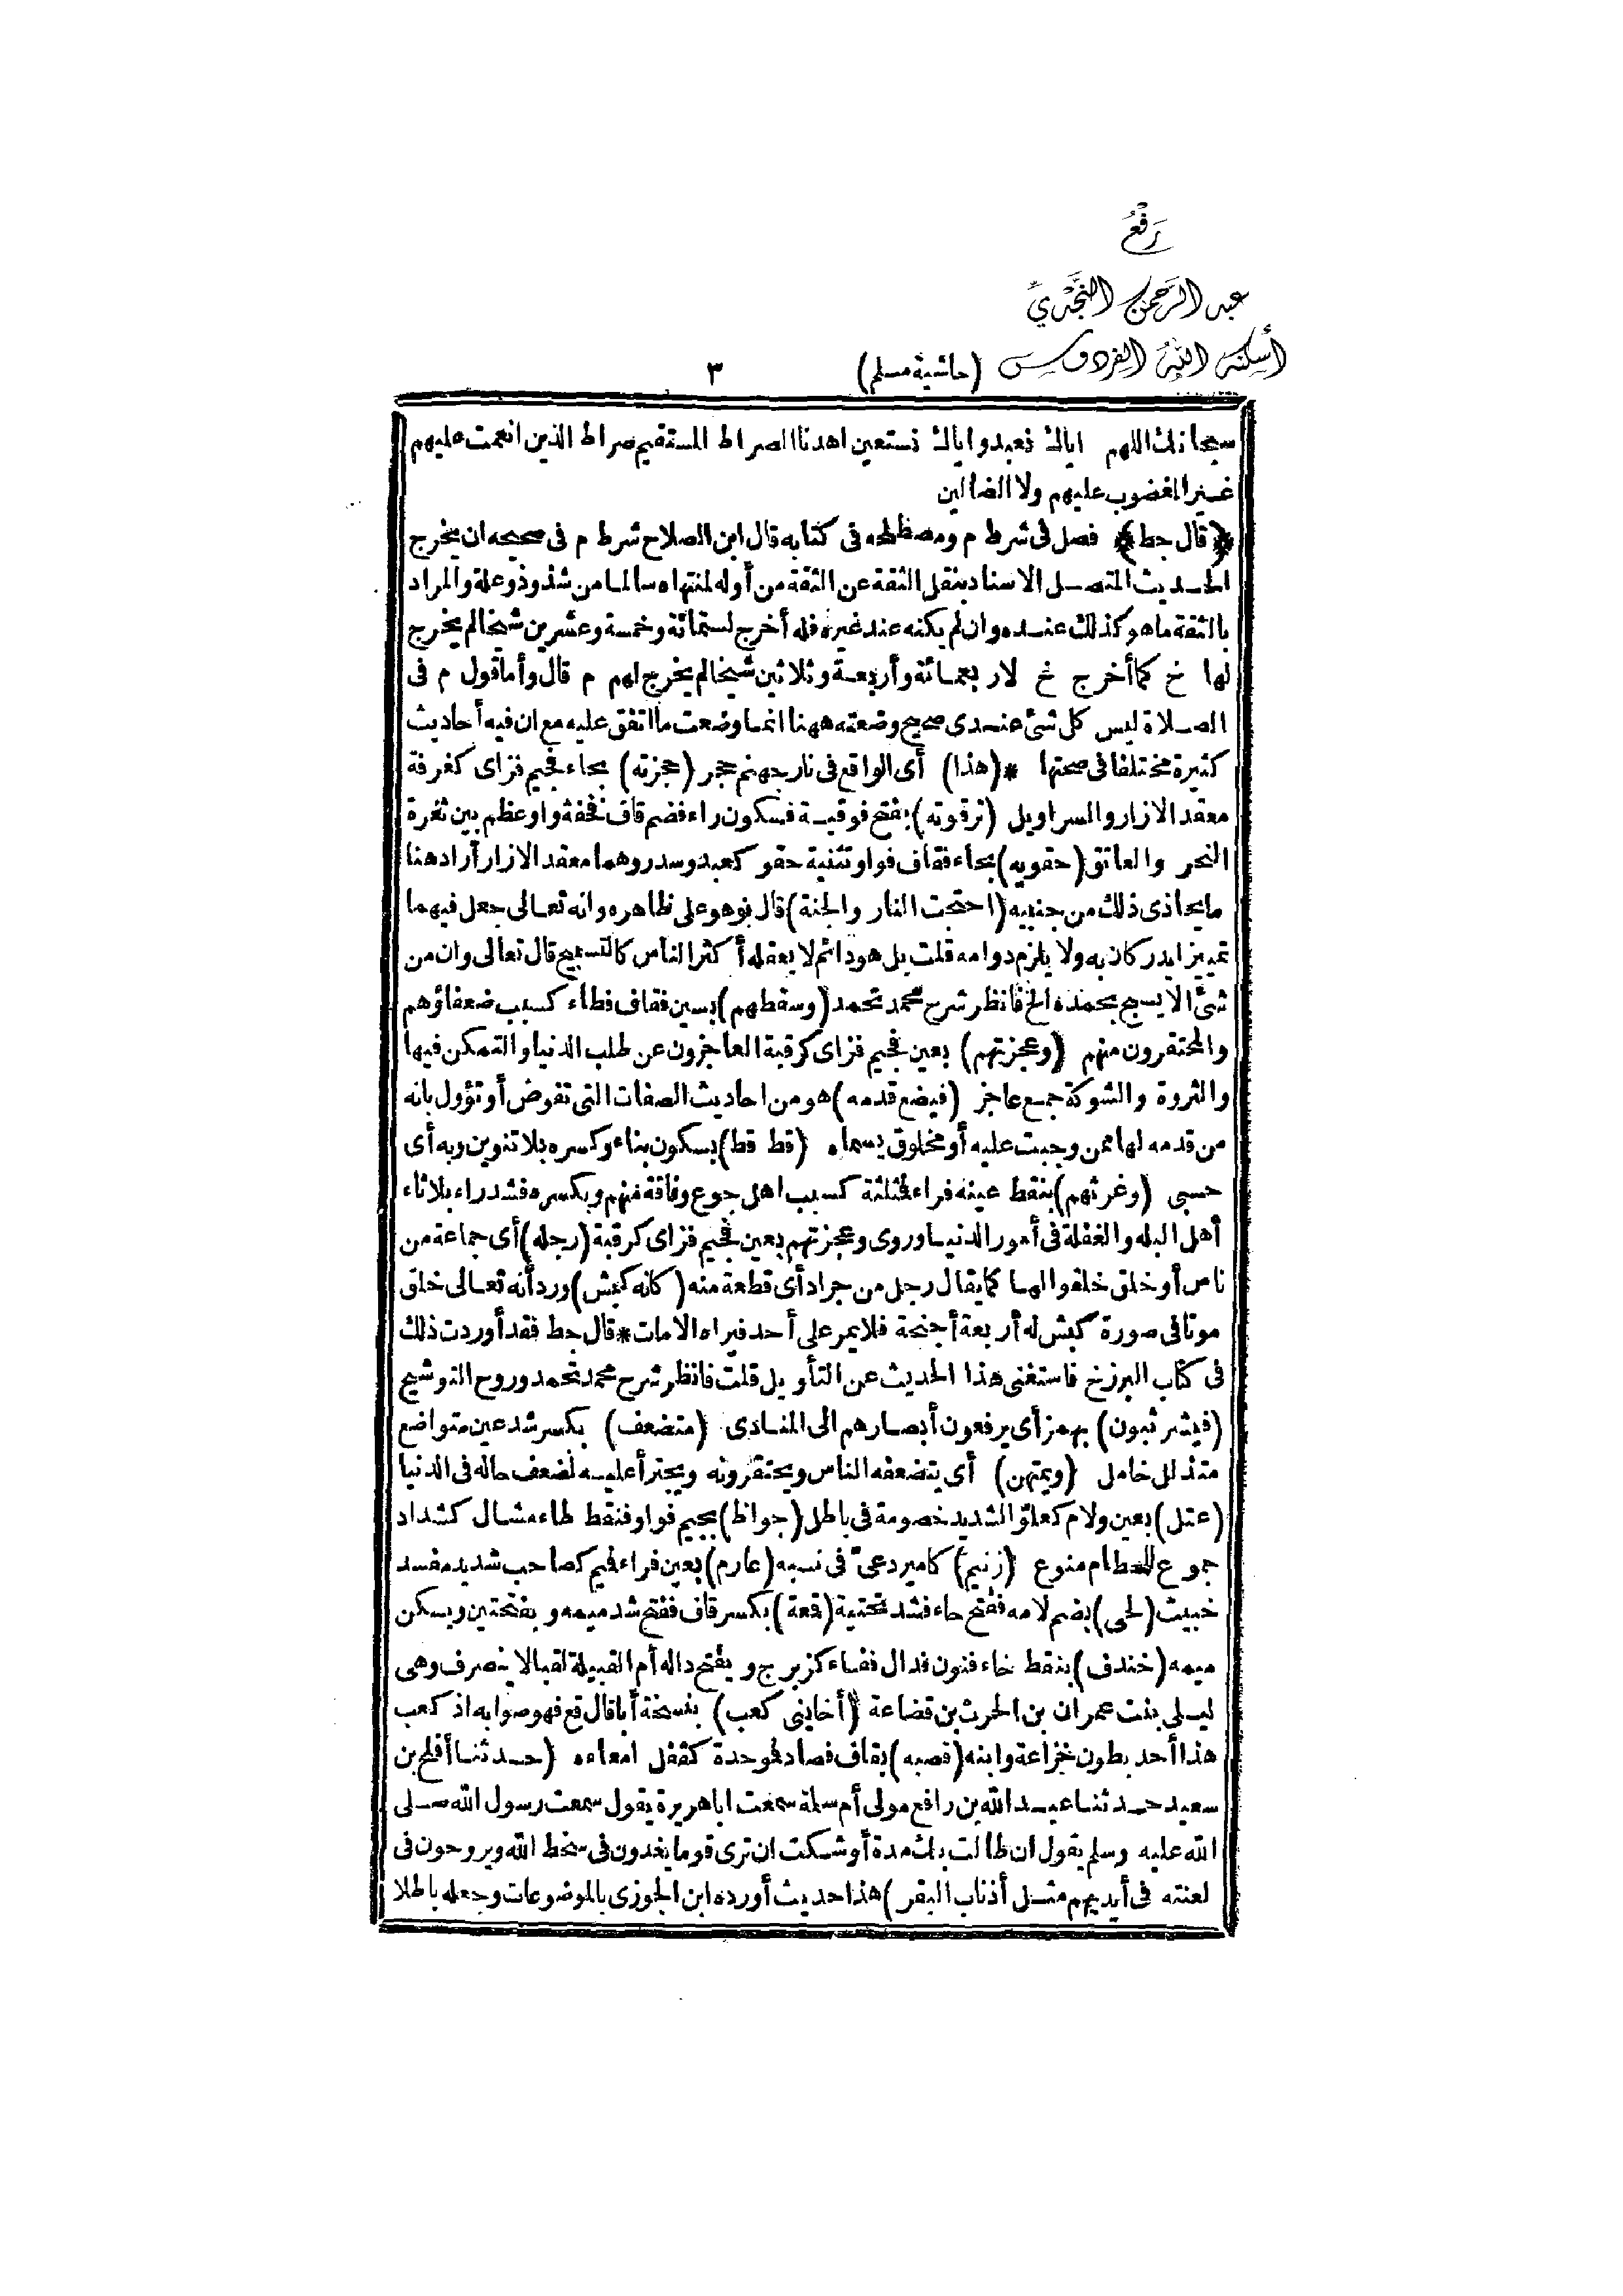 رَفْعُ
عبد الرَّحْمن النَّجْديِّ
أسكنه اللهُ الفردوس
(حاشية مسلم)
٣
سبحانك اللهم اياك نعبد واياك نستعين اهدنا الصراط المستقيم صراط الذين انعمت عليهم
غير المغضوب عليهم ولا الضالين
﴿قال جط﴾ فصل فى شرط م ومصطلحه فى كتابه قال ابن الصلاح شرط م فى صحيحه ان يخرج
الحديث المتصل الاسناد بنقل الثقة عن الثقة من أوله لمنتهاه سالما من شذوذ وعلة والمراد
بالثقة ما هو كذلك عنده وان لم يكنه عند غيره فله أخرج لستمائة وخمسة وعشرين شيخا لم يخرج
لها خ كما أخرج خ لاربعمائة وأربعة وثلاثين شيخا لم يخرج لهم م قال وأما قول م فى
الصلاة ليس كل شئ عندى صحيح وضعته ههنا انما وضعت ما اتفق عليه مع ان فيه أحاديث
كثيرة مختلفا فى صحتها *(هذا) أى الواقع فى نار جهنم حجر (حجزته) بحاء فجيم فزاى كغرفة
معقد الازار والسراويل (ترقوته) بفتح فوقية فسكون راء فضم قاف نخفة واو عظم بين ثغرة
النحر والعاتق (حقويه) بحاء فقاف فواو تثنية حقو كعبد وسدر وهما معقد الازار أراد هنا
ما يحاذى ذلك من جنبيه (احتجت النار والجنة) قال نو هو على ظاهره وانه تعالى جعل فيهما
تمييزا يدركان به ولا يلزم دوامه قلت بل هو دائم لا يعقله أكثر الناس كالتسبيح قال تعالى وان من
شئ الا يسبح بحمده الخ فانظر شرح محمد تحمد (وسقطهم) بسين فقاف فطاء كسبب ضعفاؤهم
والمحتقرون منهم (وعجزتهم) بعين فجيم فزاى كرقبة العاجزون عن طلب الدنيا والتمكن فيها
والثروة والشوكة جمع عاجز (فيضع قدمه) هو من احاديث الصفات التى تفوض أو تؤول بانه
من قدمه لها ممن وجبت عليه أو مخلوق بسماه (قط قط) بسكون بناء وكسره بلا تنوين وبه أى
حسبى (وغرثهم) بنقط عينه فراء فمثلثة كسبب اهل جوع وفاقة منهم وبكسره فشد راء بلا ثاء
أهل البله والغفلة فى أمور الدنيا وروى وعجزتهم بعين فجيم فزاى كرقبة (رجله) أى جماعة من
ناس أو خلق خلقوا لها كما يقال رجل من جراد أى قطعة منه (كانه كبش) ورد أنه تعالى خلق
موتا فى صورة كبش له أربعة أجنحة فلا يمر على أحد فيراه الا مات * قال جط فقد أوردت ذلك
فى كتاب البرزخ فاستغنى هذا الحديث عن التأويل قلت فانظر شرح محمد تحمد وروح التوشيح
(فيشرئبون) بهمز أى يرفعون أبصارهم الى المنادى (متضعف) بكسر شد عين متواضع
متذلل خامل (ويمتهن) أى يتضعفه الناس ويحتقرونه ويجترأ عليه لضعف حاله فى الدنيا
(عتل) بعين ولام كعلوّ الشديد خصومة فى باطل (جواظ) بجيم فواو فنقط طاء مشال كشداد
جموع للحطام منوع (زنيم) كامير دعىّ فى نسبه (عارم) بعين فراء فميم كصاحب شديد مفسد
خبيث (لحى) بضم لامه ففتح حاء فشد تحتية (قمعة) بكسر قاف ففتح شد ميمه وبفتحتين ويسكن
ميمه (خندف) بنقط خاء فنون فدال ففاء كزبرج ويفتح داله أم القبيلة لقبا لا ينصرف وهى
ليلى بنت عمران بن الحرث بن قضاعة (أخابنى كعب) بنسخة أبا قال قع فهو صوابه اذ كعب
هذا أحد بطون خزاعة وابنه (قصبه) بقاف فصاد فموحدة كقفل امعاءه (حدثنا أفلح بن
سعيد حدثنا عبد الله بن رافع مولى أم سلمة سمعت ابا هريرة يقول سمعت رسول الله صلى
الله عليه وسلم يقول ان طالت بك مدة أوشكت ان ترى قوما يغدون فى سخط الله ويروحون فى
لعنته فى أيديهم مثل أذناب البقر) هذا حديث أورده ابن الجوزى بالموضوعات وجعله باطلا